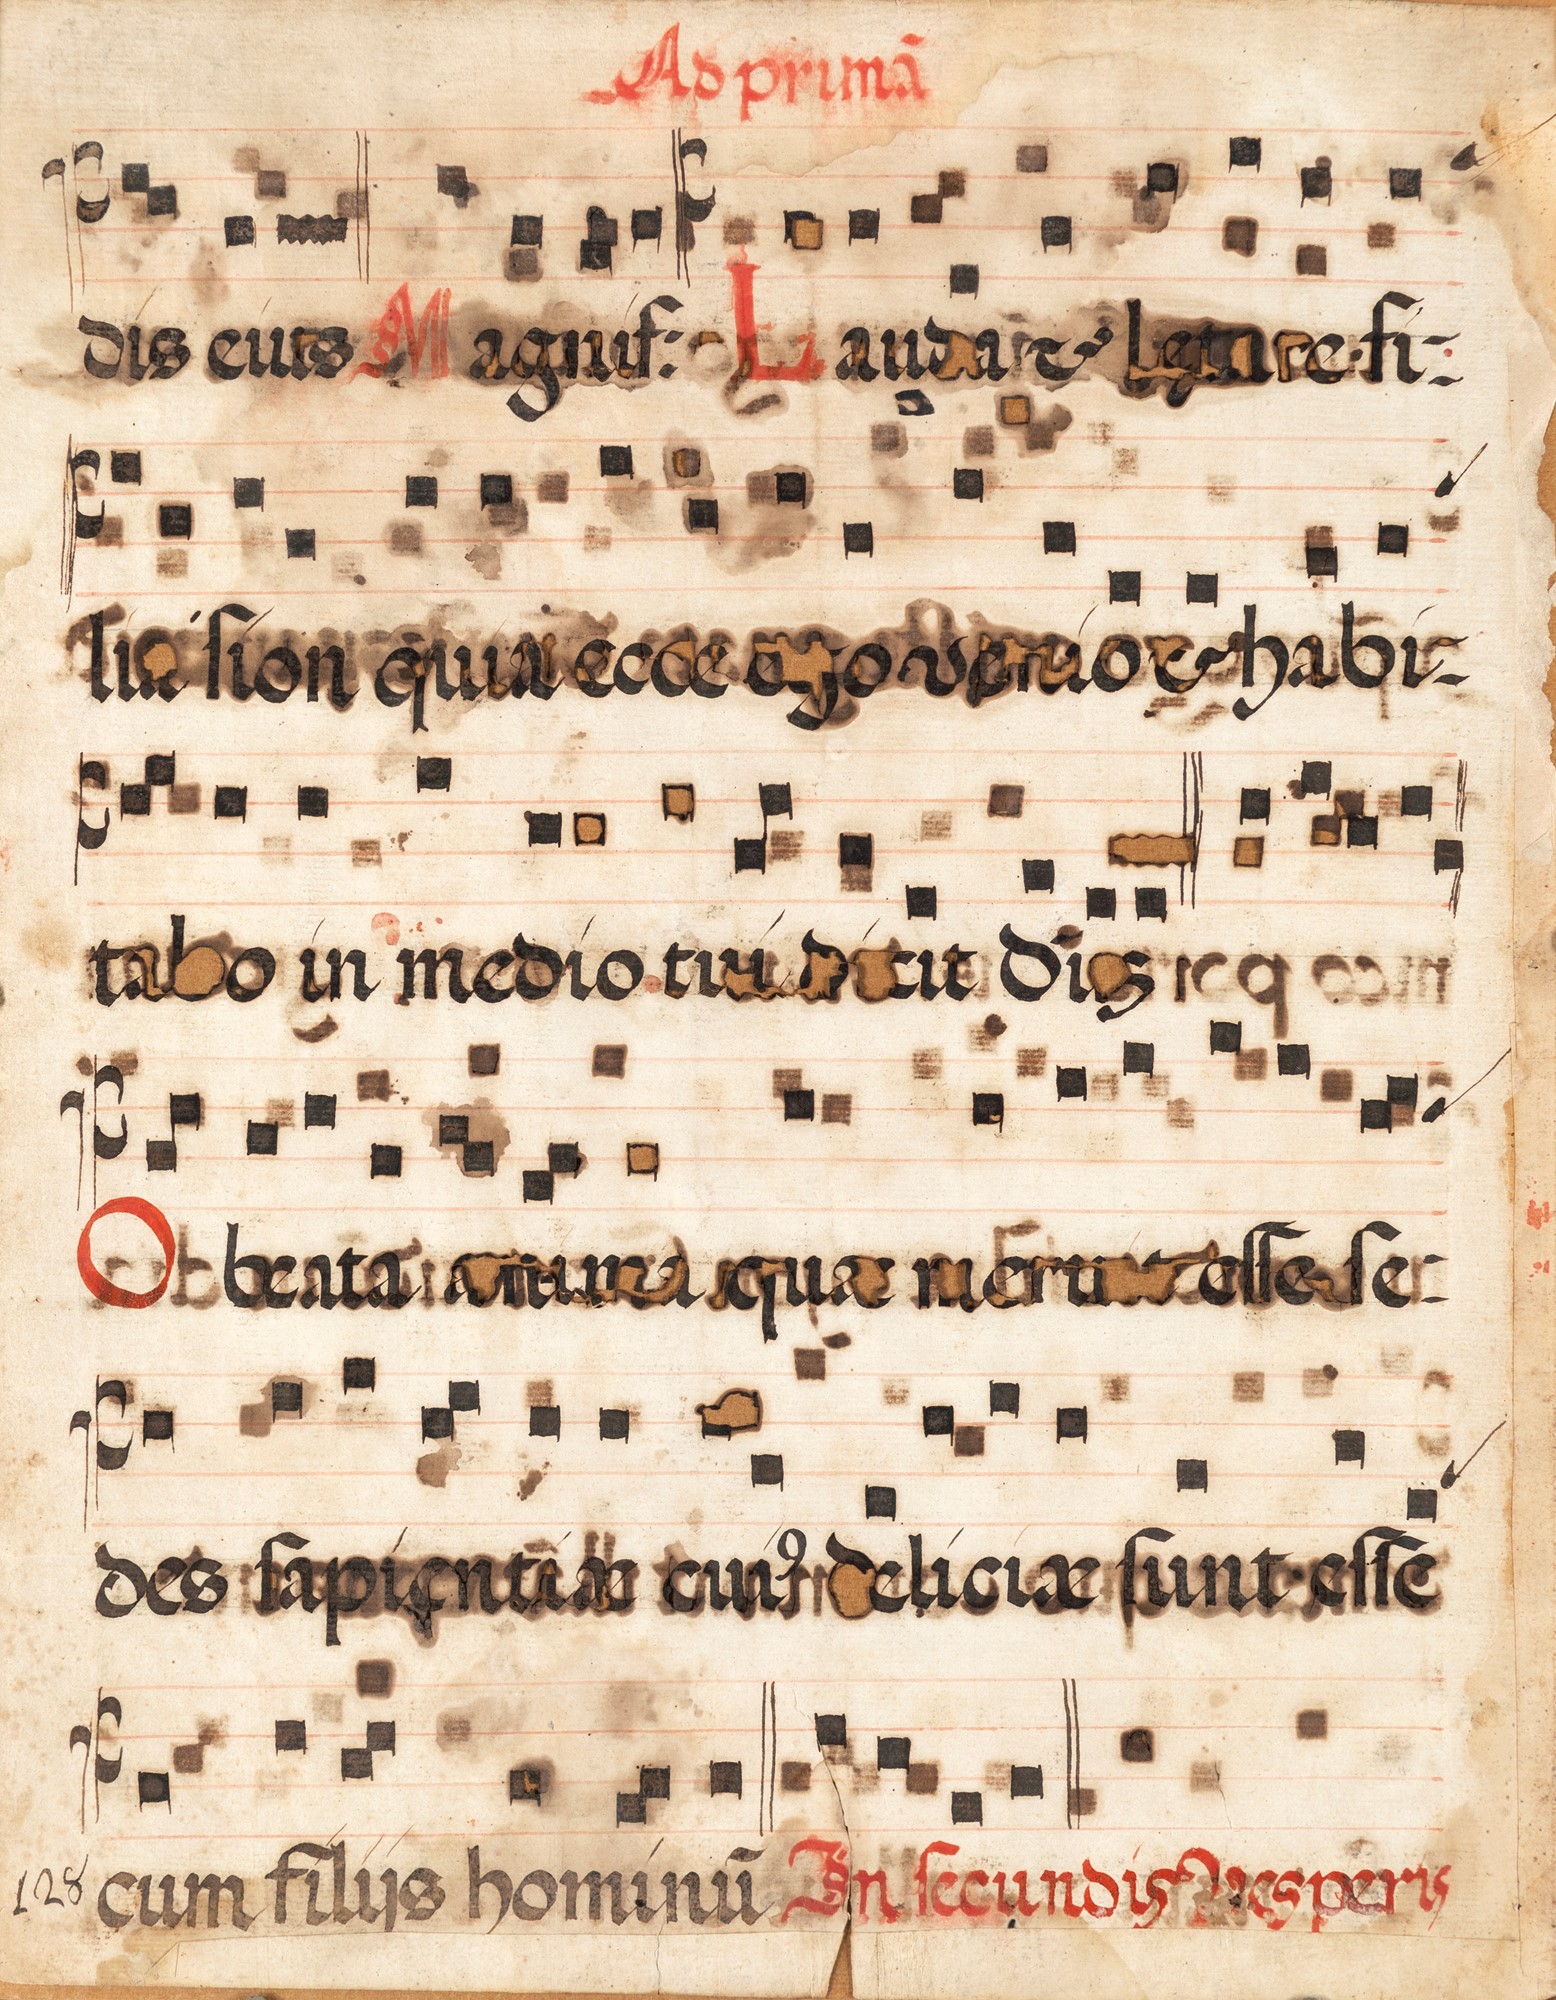 Ad primā
dis eius Magnif: Lauda & letare fi-
lia sion quia ecce ego venio & habi-
tabo in medio tui dicit Dñs
O beata anima quæ meruit esse se-
des sapientiæ cui⁹ deliciæ sunt esse
128 cum filijs hominū In secundis vesperis